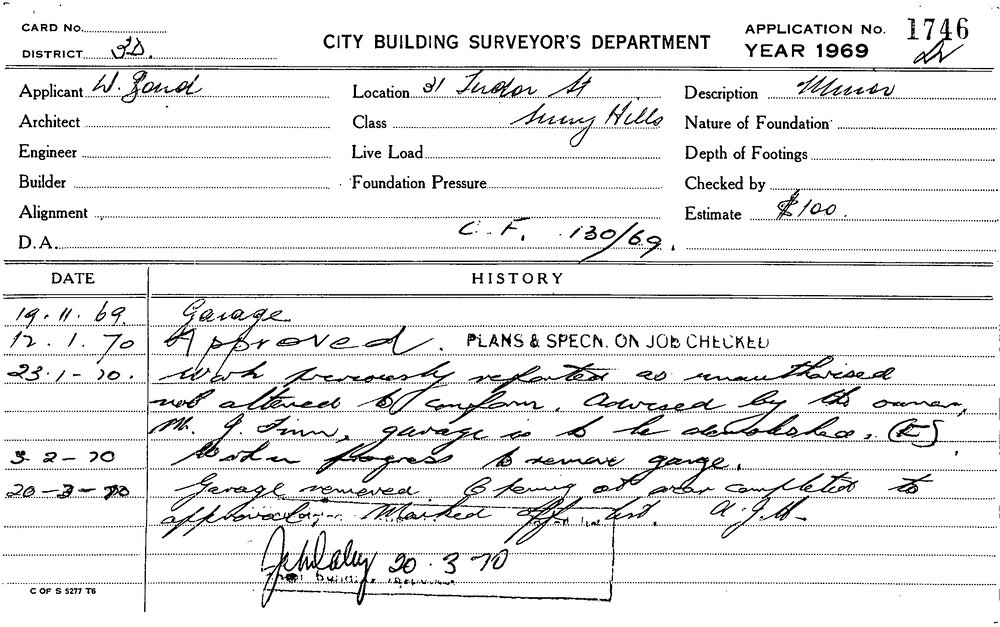 CARD No.
DISTRICT 3D.
CITY BUILDING SURVEYOR'S DEPARTMENT
APPLICATION No. 1746
YEAR 1969
Applicant W.
Location 31 Tudor St
Description Minor
Architect
Class Surry Hills
Nature of Foundation
Engineer
Live Load
Depth of Footings
Builder
Foundation Pressure
Checked by
Alignment
Estimate $100.
D.A. C.F. 130/69.
DATE HISTORY
19.11.69. Garage
12.1.70 Approved. PLANS & SPECN. ON JOB CHECKED
23.1-70. Work previously reported as unauthorised
not altered to conform. Advised by the owner,
M. J. Finn, garage is to be demolished.
3-2-70 Work in progress to remove garage.
20-3-70 Garage removed. Opening at rear completed to
approval. Marked off list. A.J.H.
20.3.70
C OF S 5277 T6